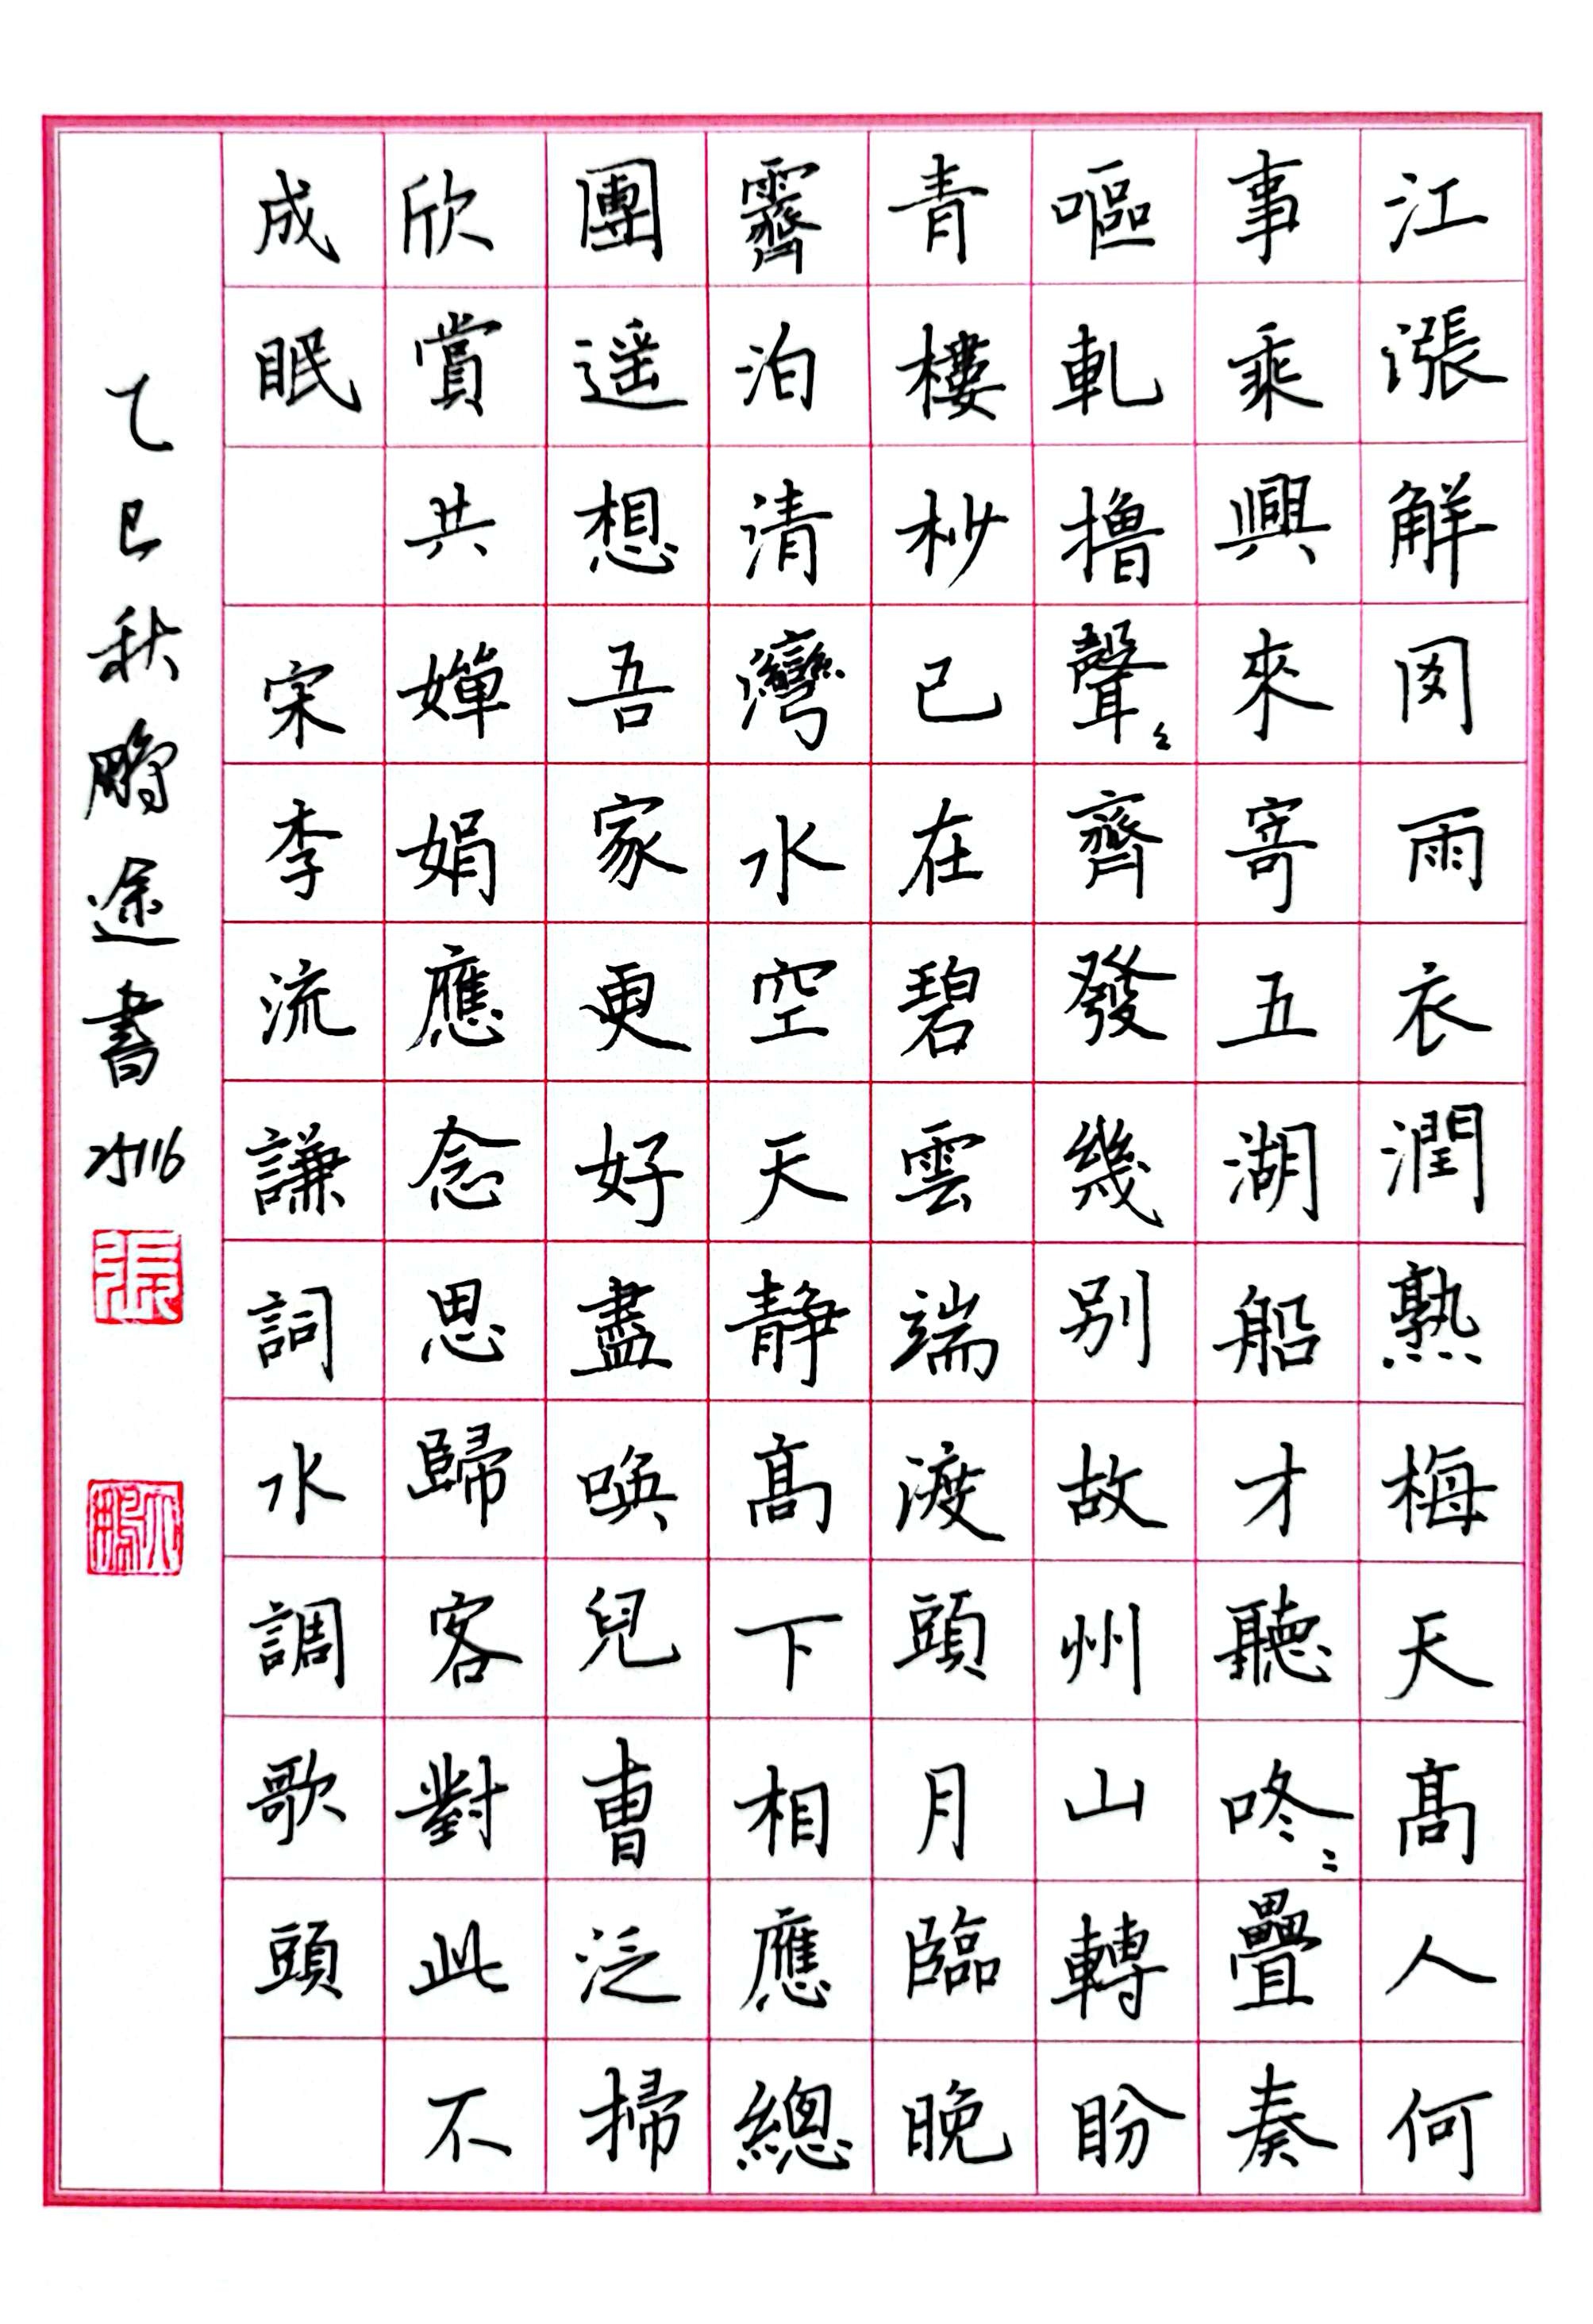 江漲解図雨衣潤熟梅天高人何
事乘興來寄五湖船才聽咚〻疊奏
嘔軋擼聲〻齊發幾別故州山轉盼
青樓杪已在碧雲端渡頭月臨晚
霽泊清灣水空天靜高下相應總
團遥想吾家更好盡喚兒曹泛掃
欣賞共嬋娟應念思歸客對此不
成眠 宋李流謙詞水調歌頭
乙巳秋鵬途書 25116
張